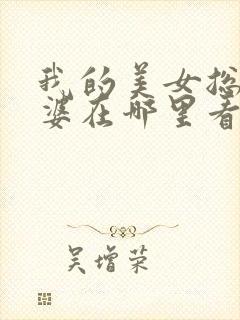 我的美女总
婆在哪里看
吴增荣